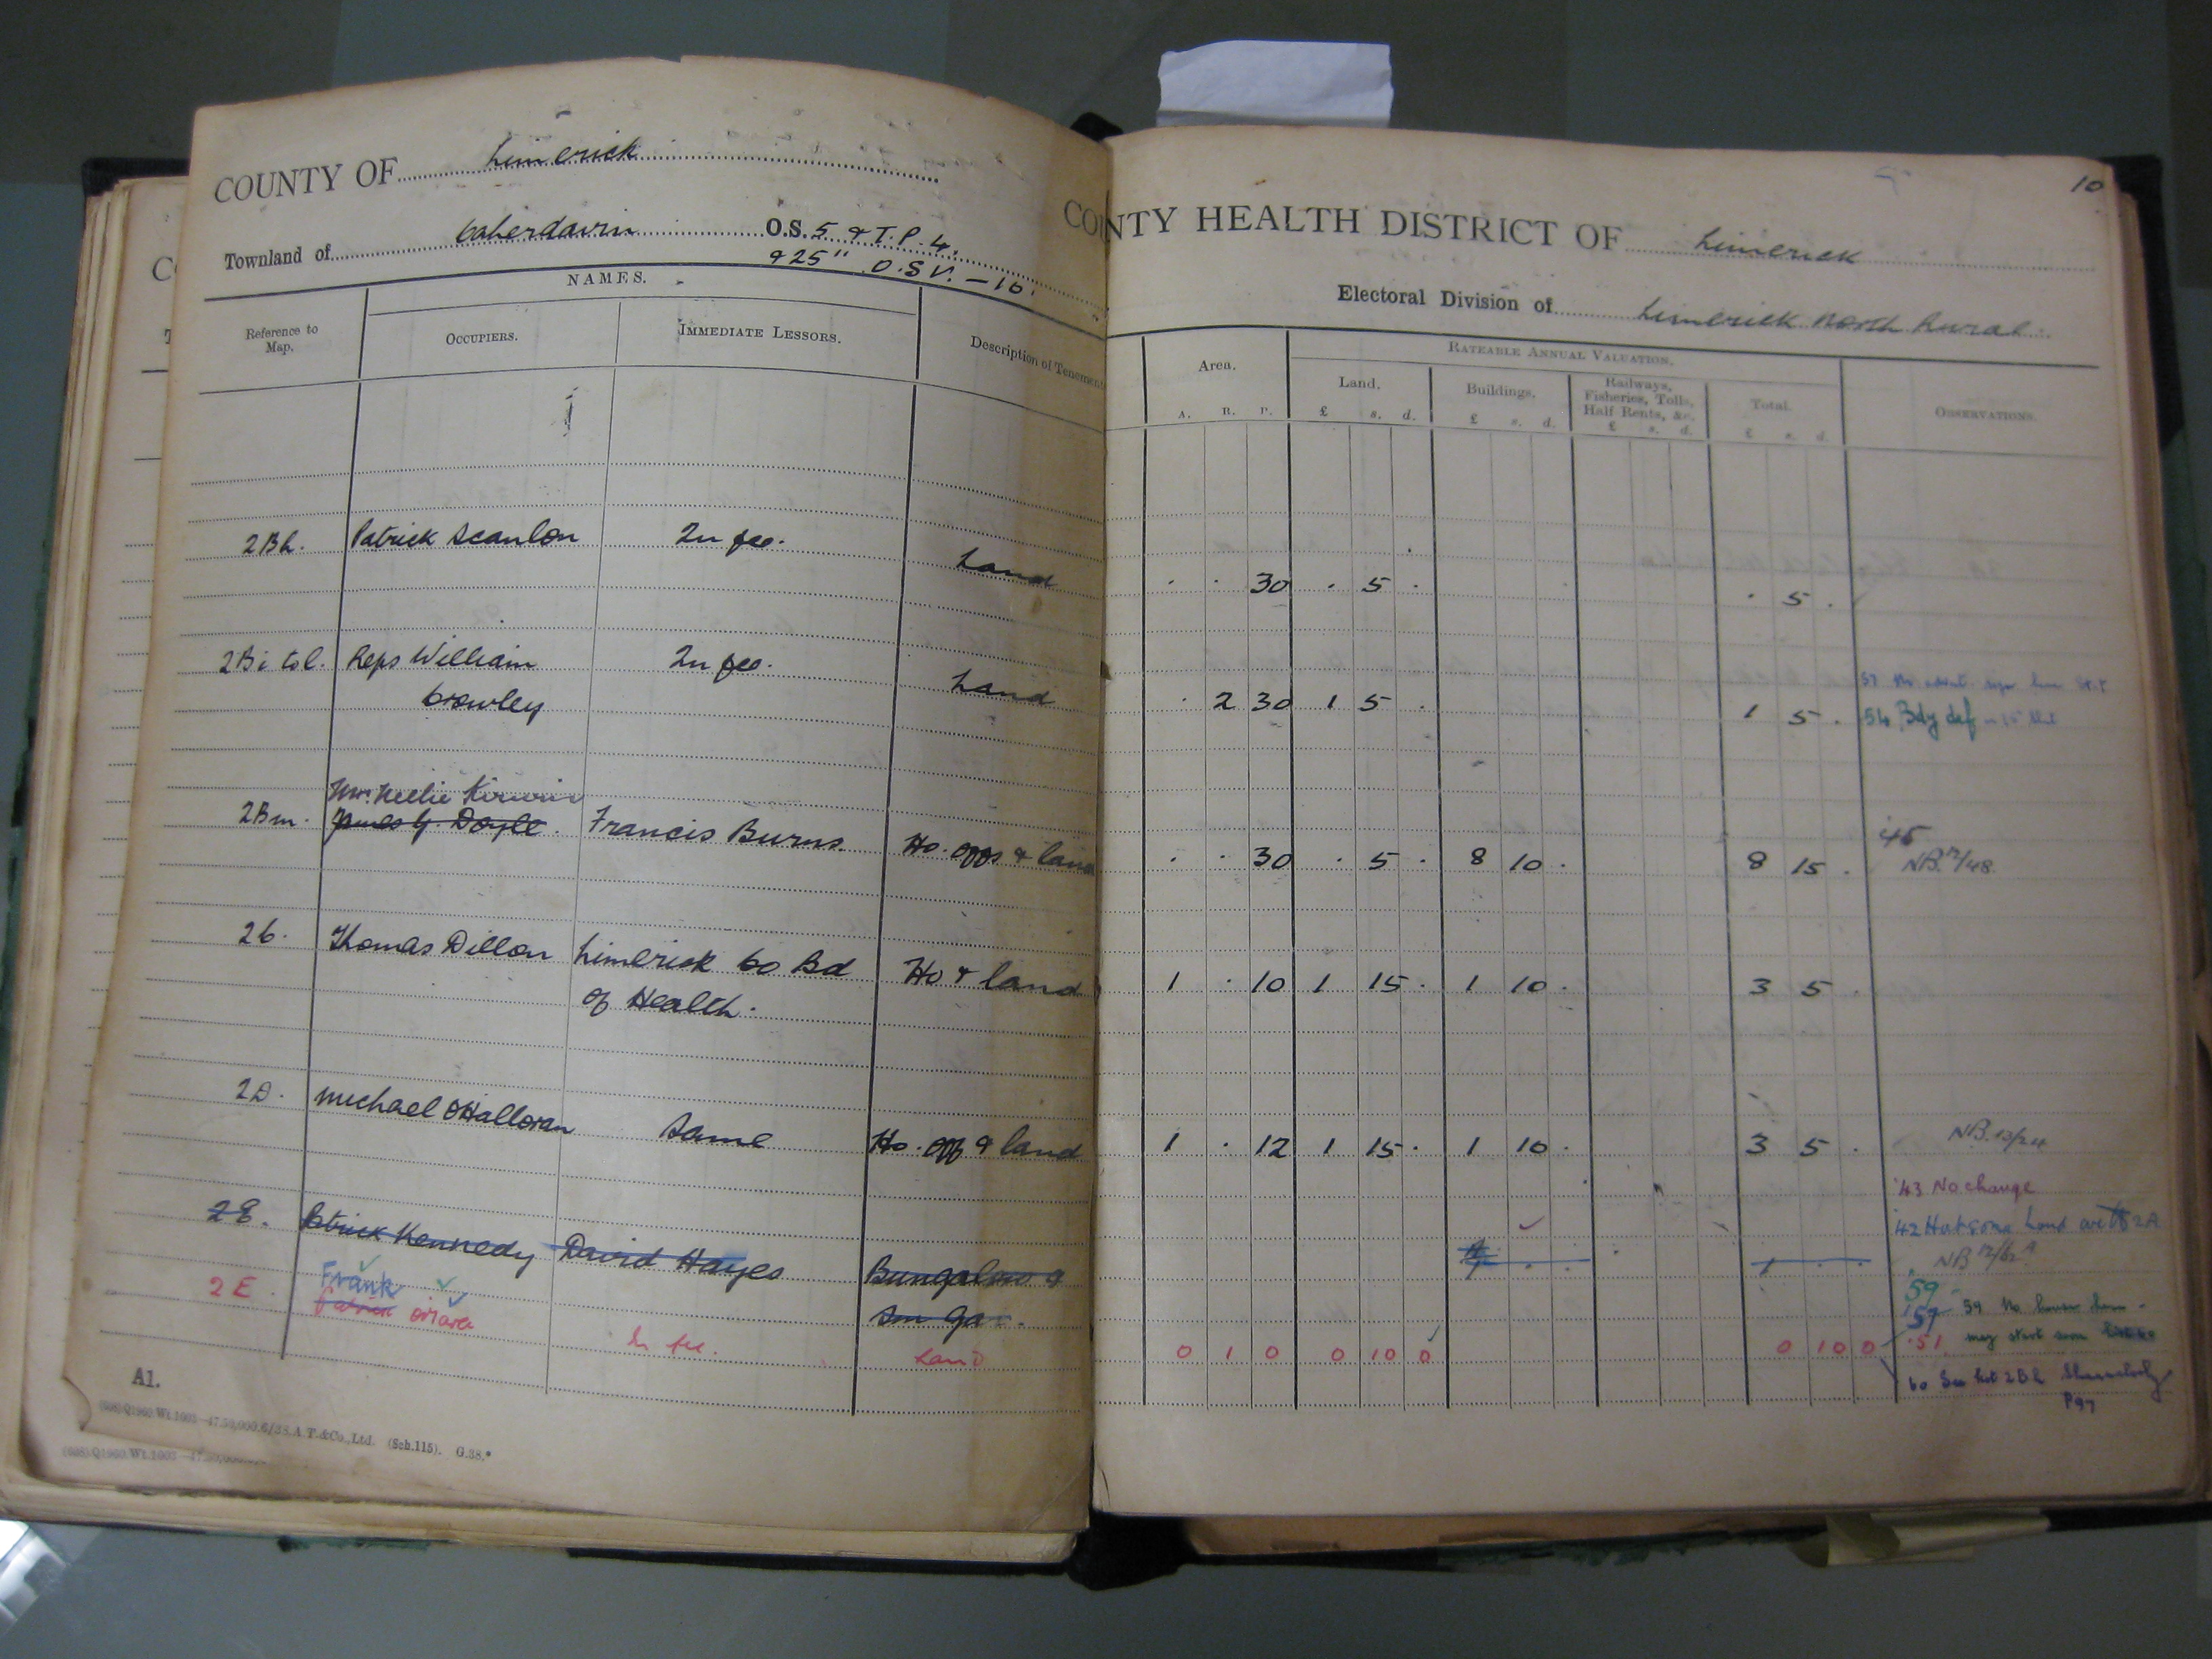 COUNTY OF Limerick
Townland of Caherdavin O.S. 5 & T.P. 4.
& 25" O.S V. – 10.
NAMES.
Reference to Map.
OCCUPIERS.
IMMEDIATE LESSORS.
Description of Tenement
10
COUNTY HEALTH DISTRICT OF Limerick
Electoral Division of Limerick North Rural
Area.
A. R. P.
RATEABLE ANNUAL VALUATION.
Land.
£ s. d.
Buildings.
£ s. d.
Railways, Fisheries, Tolls, Half Rents, &c.
£ s. d.
Total.
£ s. d.
OBSERVATIONS.
2Bh. Patrick Scanlon In fee. Land . . 30 . 5 . . 5 .
2Bi to l. Reps William In fee. Land . 2 30 1 5 . 1 5 .
Crowley
54 Bdy def
Mrs. Nellie Kirwin
2Bm. James G Doyle. Francis Burns. Ho. offs & land . . 30 . 5 . 8 10 . 8 15 .
'45
NB.12/48.
2C. Thomas Dillon Limerick Co Bd Ho & land 1 . 10 1 15 . 1 10 . 3 5 .
of Health.
2D. Michael O'Halloran Same Ho. off & land 1 . 12 1 15 . 1 10 . 3 5 .
NB.13/24
'43 No change
2E. Patrick Kennedy David Hayes Bungalow &
Sm Ga .
'42 Hut gone Land 2A
NB 12/62
2 E. Frank
Patrick O'Mara In fee. Land 0 1 0 0 10 0 0 10 0
59
'57 59 No house
'51 may start soon
60 See 2Bh
P97
A1.
(608).Q1960.Wt.1003—47.50,000.6/38.A.T.&Co.,Ltd. (Sch.115). G.38.*